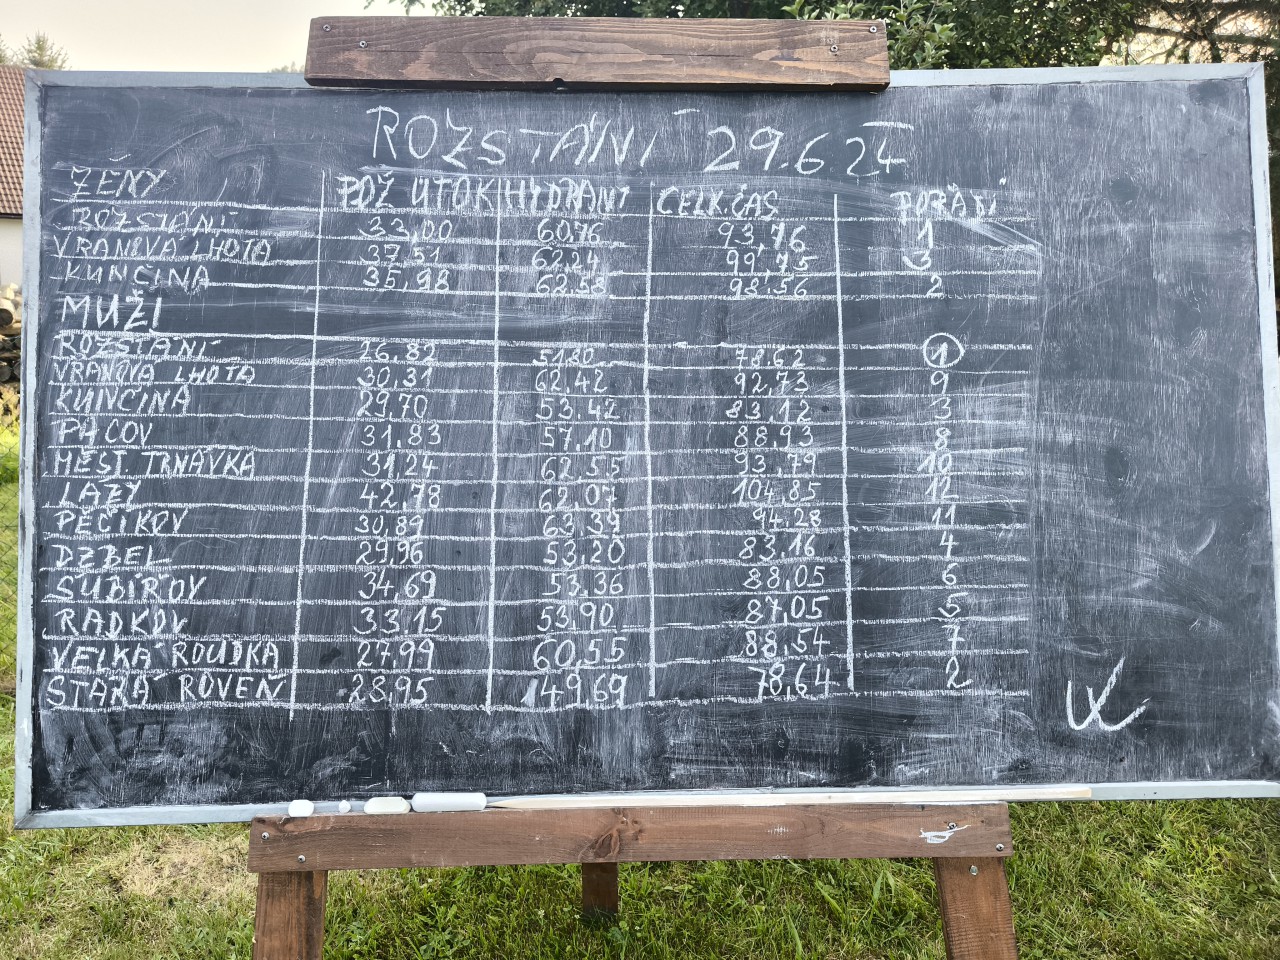 ROZSTÁNÍ 29.6.24
ŽENY POŽ ÚTOK HYDRANT CELK.ČAS POŘADÍ
ROZSTÁNÍ 33,00 60,76 93,76 1
VRANOVÁ LHOTA 37,51 62,24 99,75 3
KUNČINA 35,98 62,58 98,56 2
MUŽI
ROZSTÁNÍ 26,82 51,80 78,62 1
VRANOVÁ LHOTA 30,31 62,42 92,73 9
KUNČINA 29,70 53,42 83,12 3
PACOV 31,83 57,10 88,93 8
MĚST. TRNÁVKA 31,24 62,55 93,79 10
LAZY 42,78 62,07 104,85 12
PĚČÍKOV 30,89 63,39 94,28 11
DZBEL 29,96 53,20 83,16 4
ŠUBÍŘOV 34,69 53,36 88,05 6
RADKOV 33,15 53,90 87,05 5
VELKÁ ROUDKA 27,99 60,55 88,54 7
STARÁ ROVEŇ 28,95 49,69 78,64 2